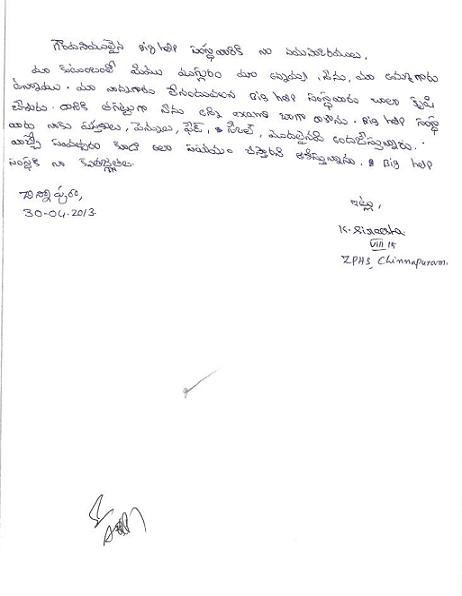 గౌరవనీయులైన Big help సంస్థవారికి నా నమస్కారములు.
మా కుటుంబంలో మేము ముగ్గురం మా అన్నయ్య, నేను, మా అమ్మగారు
ఉన్నాము. మా నాన్నగారు లేనందువలన Big help సంస్థవారు చాలా కృషి
చేశారు. దానికి తగ్గట్టుగా నేను అన్ని బాగా రాశాను. Big help సంస్థ
వారు నాకు పుస్తకాలు, పెన్నులు, ప్లేట్, మొదలైనవి అందజేస్తున్నారు.
వచ్చే సంవత్సరం కూడా ఇలా సహాయం చేస్తారని ఆశిస్తున్నాను. Big help
సంస్థకి నా కృతజ్ఞతలు.
చిన్నాపురం,
30-04-2013.
ఇట్లు,
K.
VIII
ZPHS, Chinnapuram.